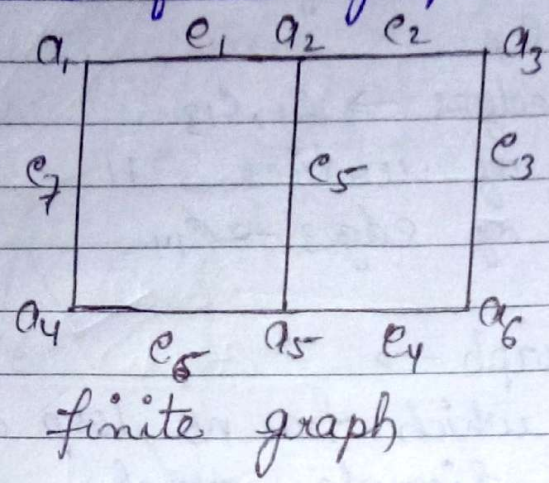 a1 e1 a2 e2 a3
e7 e5 e3
a4 e6 a5 e4 a6
finite graph